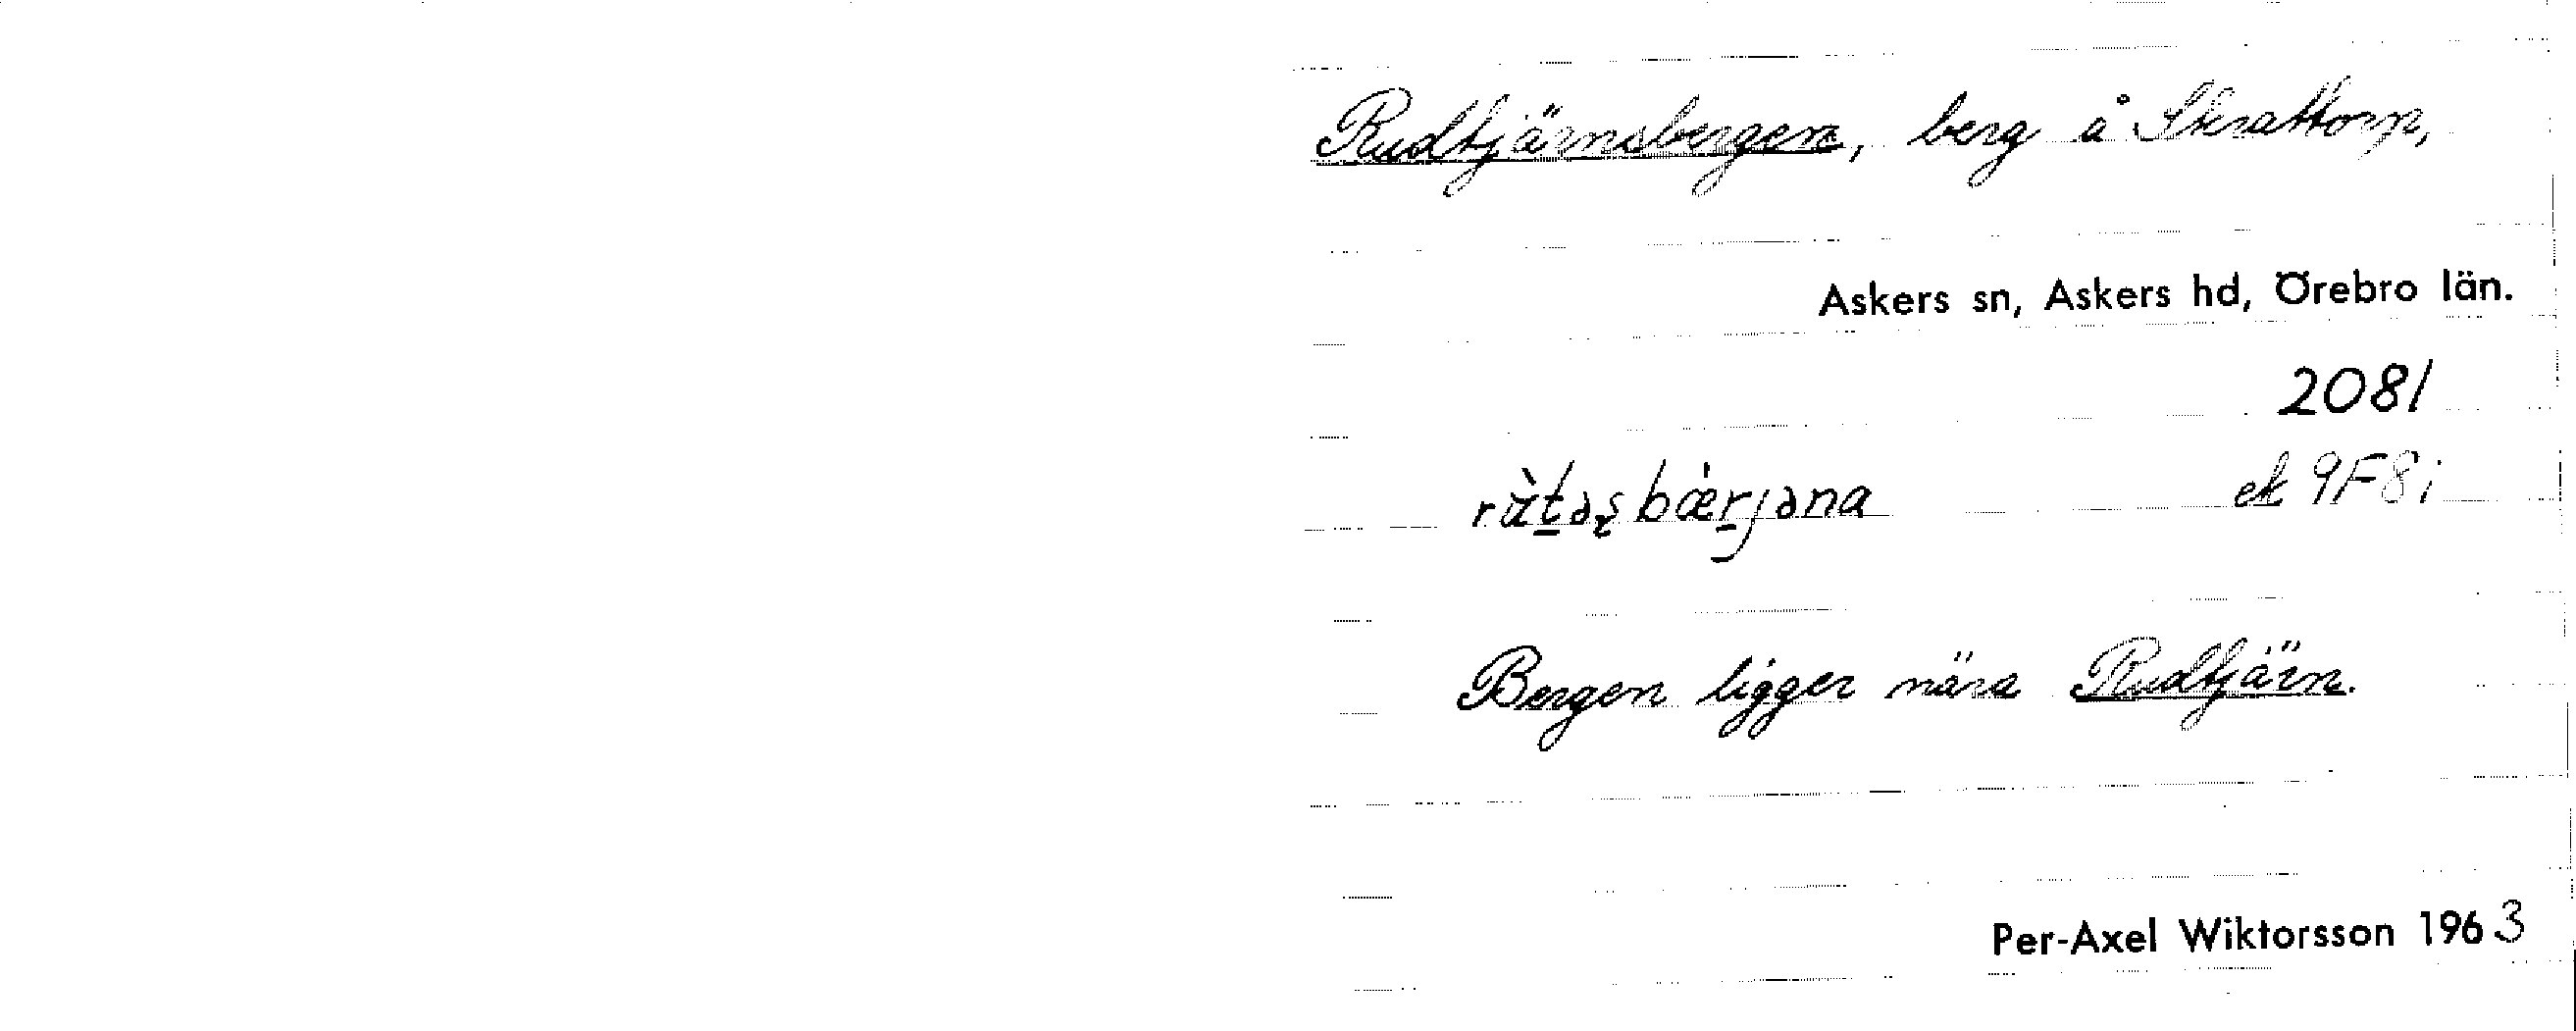 Rudtjärnsbergen, berg å Skrattorp,
Askers sn, Askers hd, Örebro län.
2081
ek 9F8i
Bergen ligger nära Rudtjärn.
Per-Axel Wiktorsson 1963